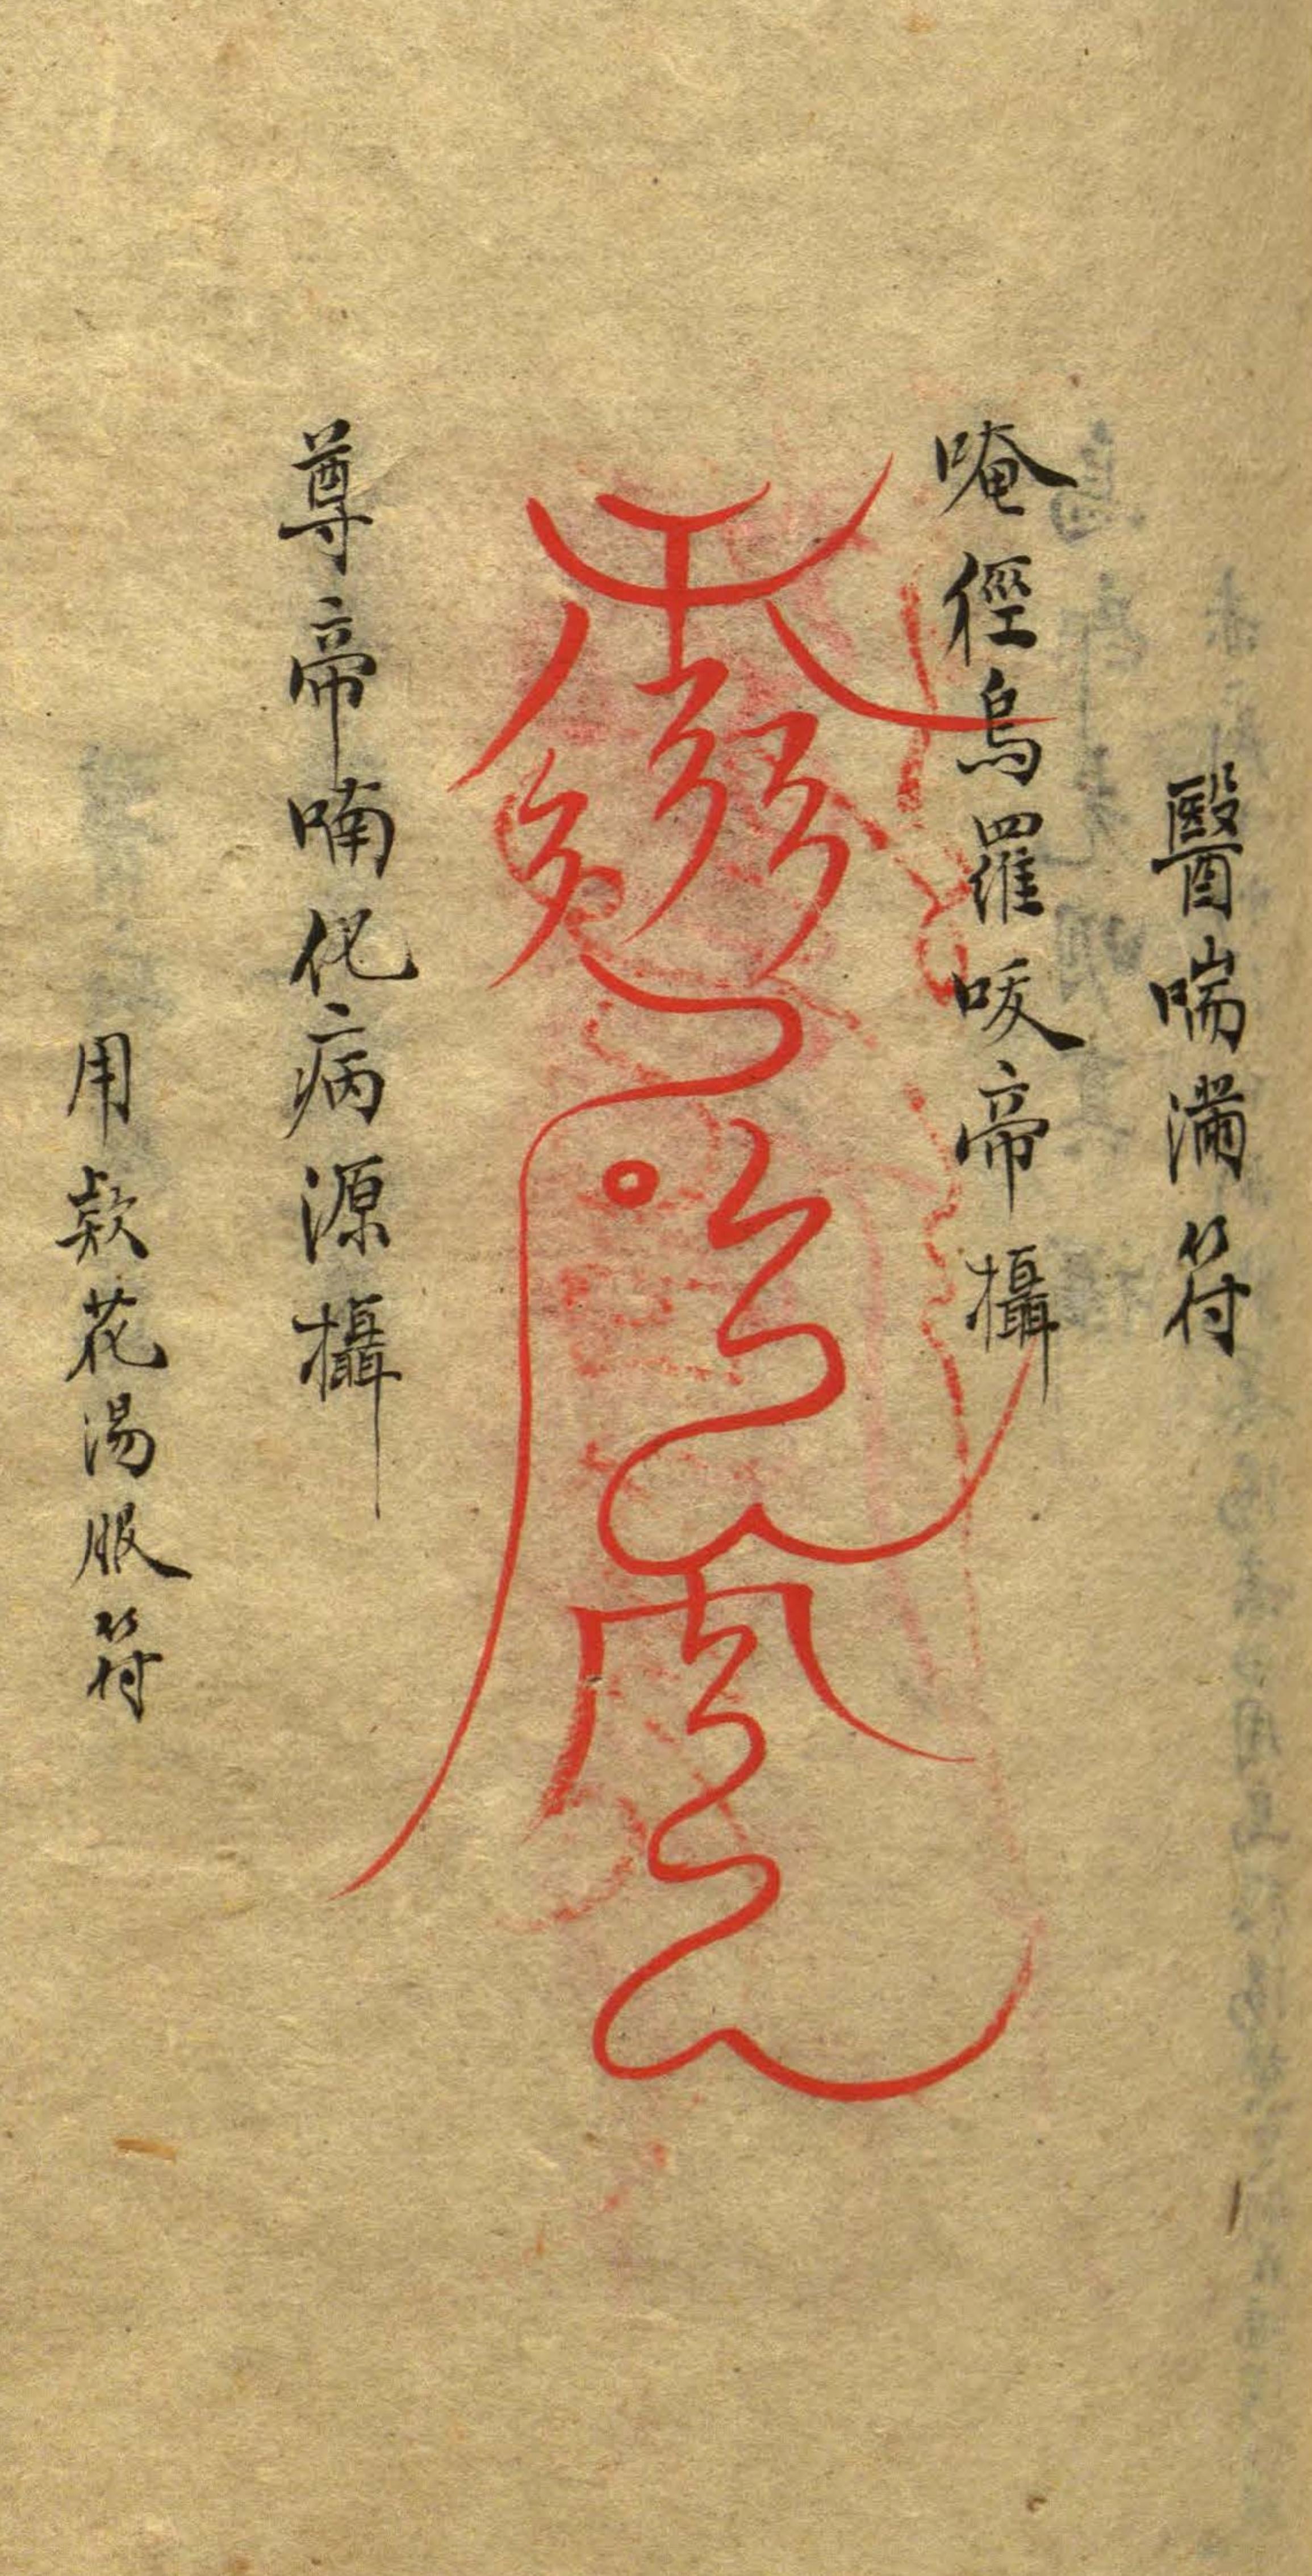 醫喘滿符
唵徑烏羅㕹帝攝
尊帝喃化病源攝
用款花湯服符